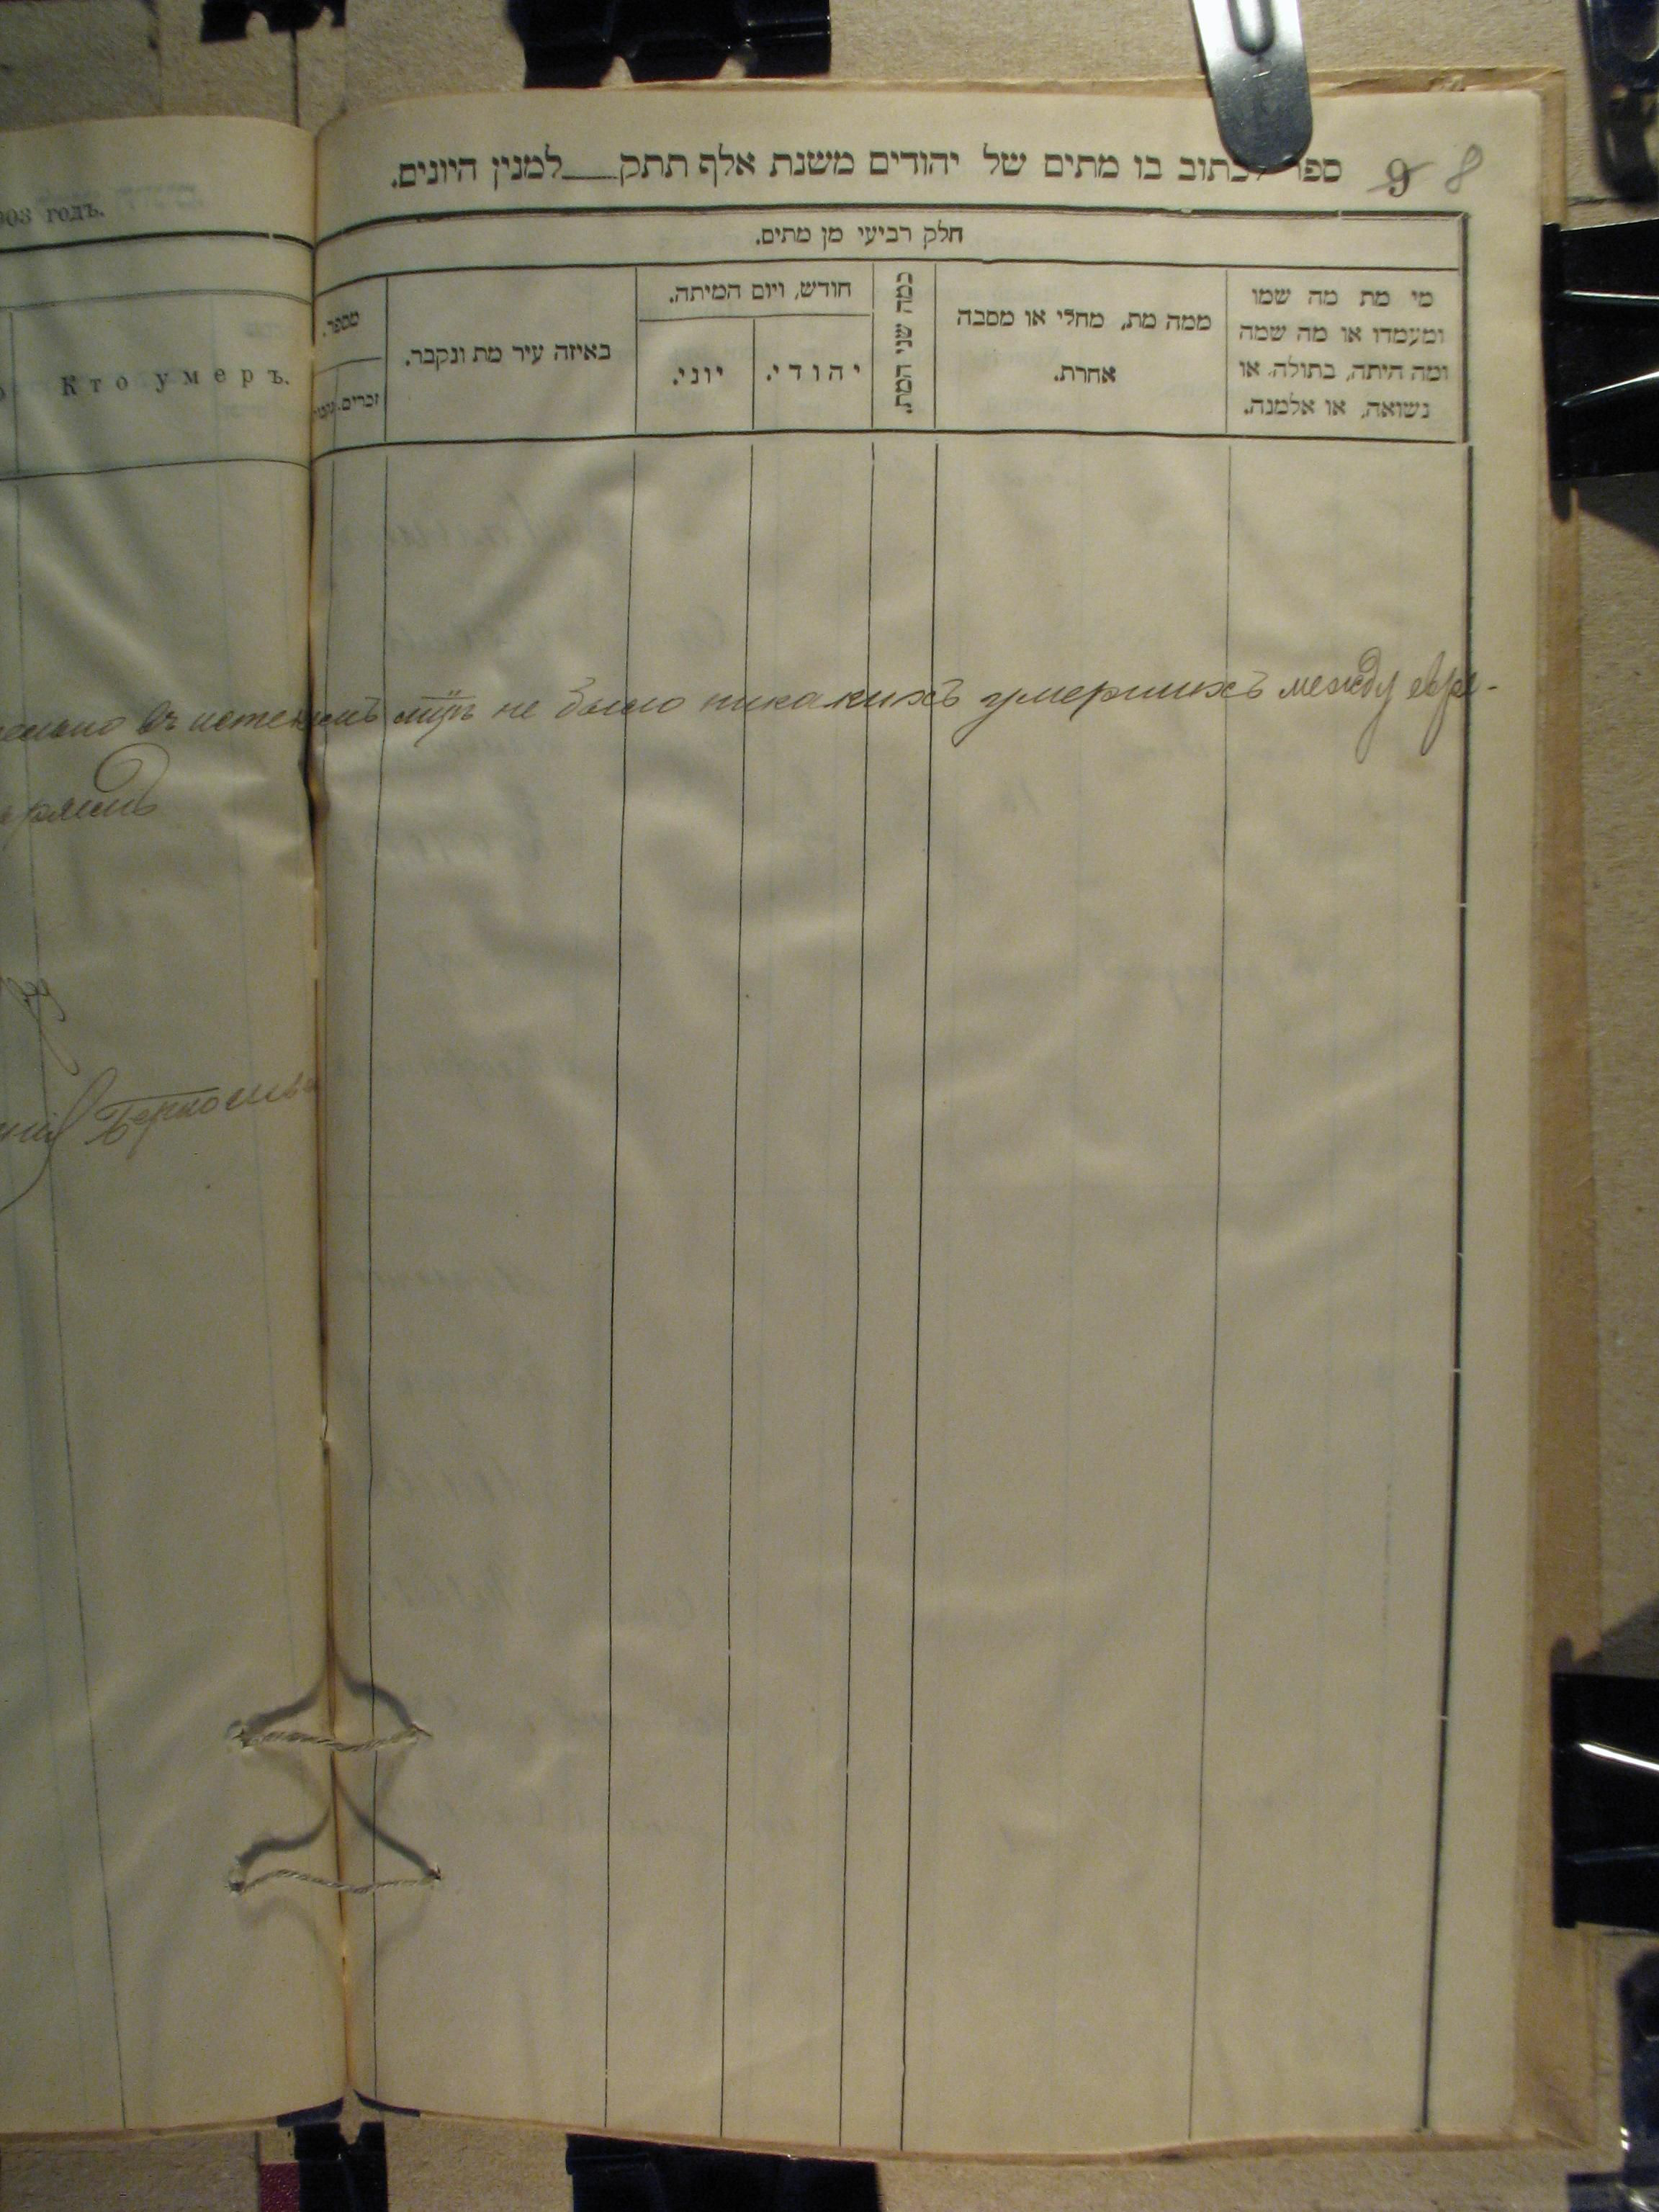 903 годъ.
Кто умеръ.
ספר לכתוב בו מתים של יהודים משנת אלף תתק___למנין היונים.
9 8
חלק רביעי מן מתים.
מי מת מה שמו
ומעמדו או מה שמה
ומה היתה, בתולה, או
נשואה, או אלמנה.
ממה מת, מחלי או מסבה
אחרת.
כמה שני המת.
חודש, ויום המיתה.
יהודי.
יוני.
באיזה עיר מת ונקבר.
מספר.
זכרים.
въ не было никакихъ умершихъ между евре-